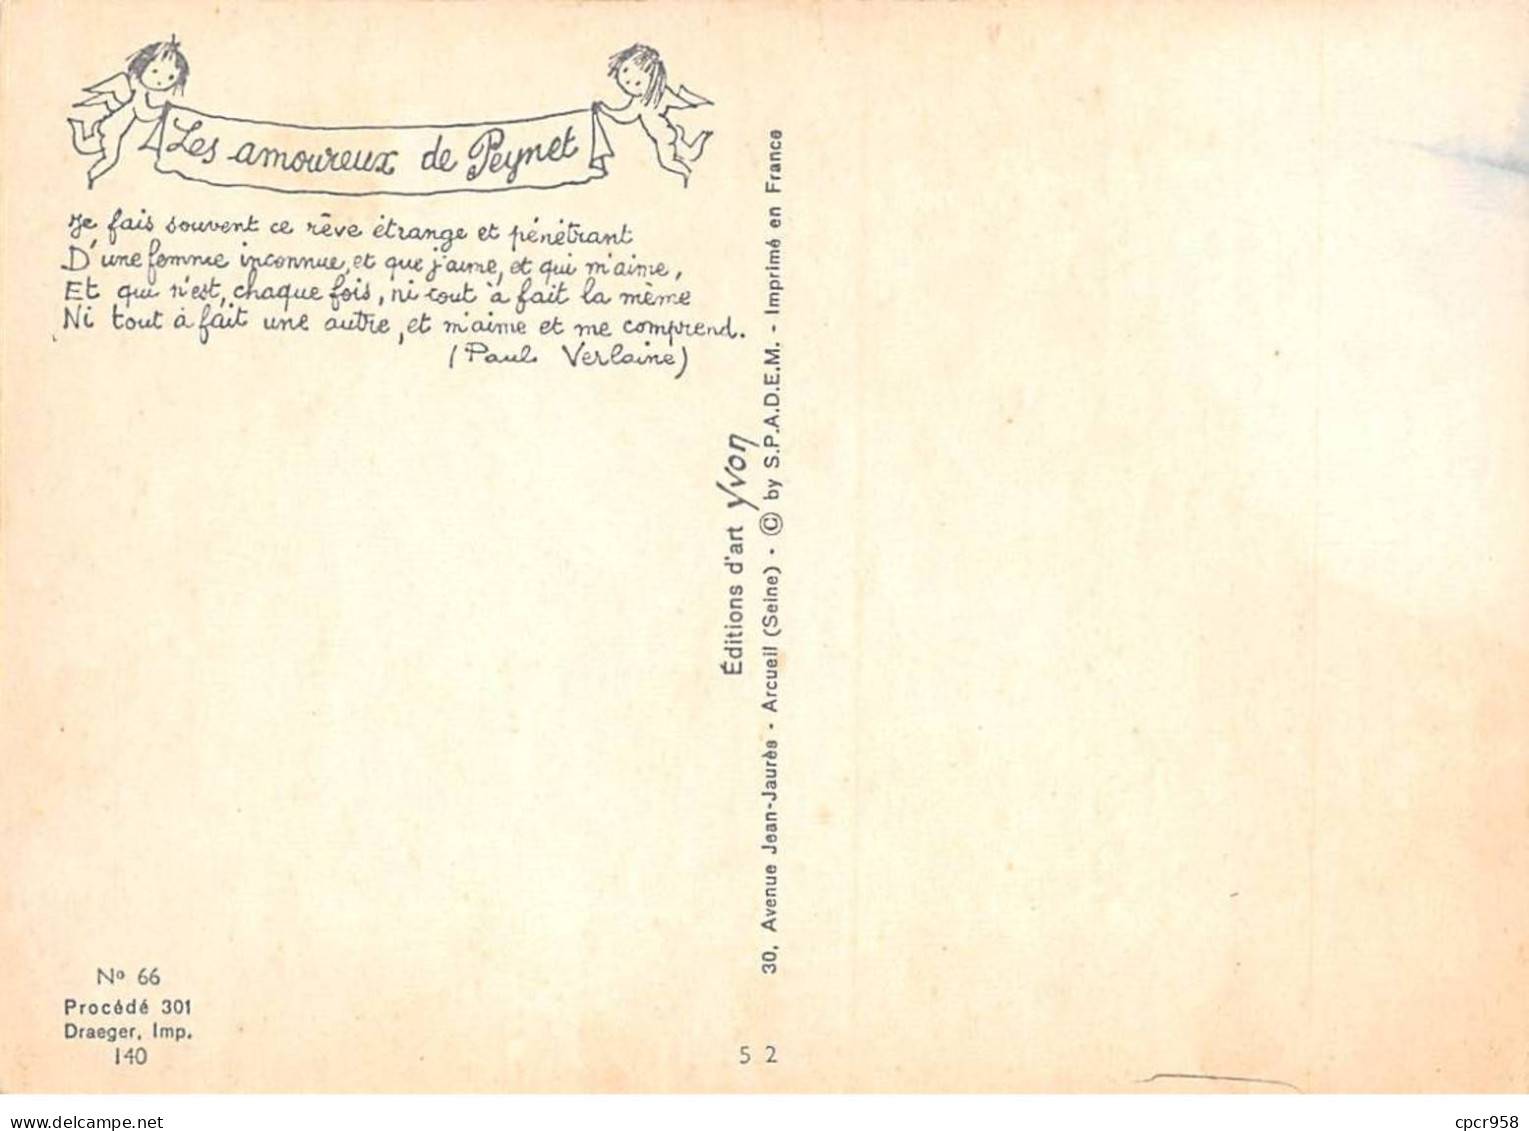 Les amoureux de Peynet
Je fais souvent ce rêve étrange et pénétrant
D'une femme inconnue, et que j'aime, et qui m'aime,
Et qui n'est, chaque fois, ni tout à fait la même
Ni tout à fait une autre, et m'aime et me comprend.
(Paul Verlaine)
Éditions d'art Yvon
30, Avenue Jean-Jaurès - Arcueil (Seine) - © by S.P.A.D.E.M. - Imprimé en France
Nº 66
Procédé 301
Draeger, Imp.
140
5 2
delcampe.net
cpcr958